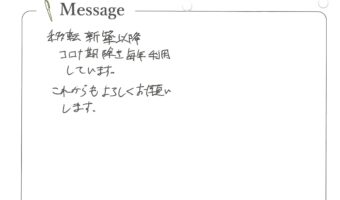 Message
移転新築以降
コロナ期除き毎年利用
しています。
これからもよろしくお願い
します。